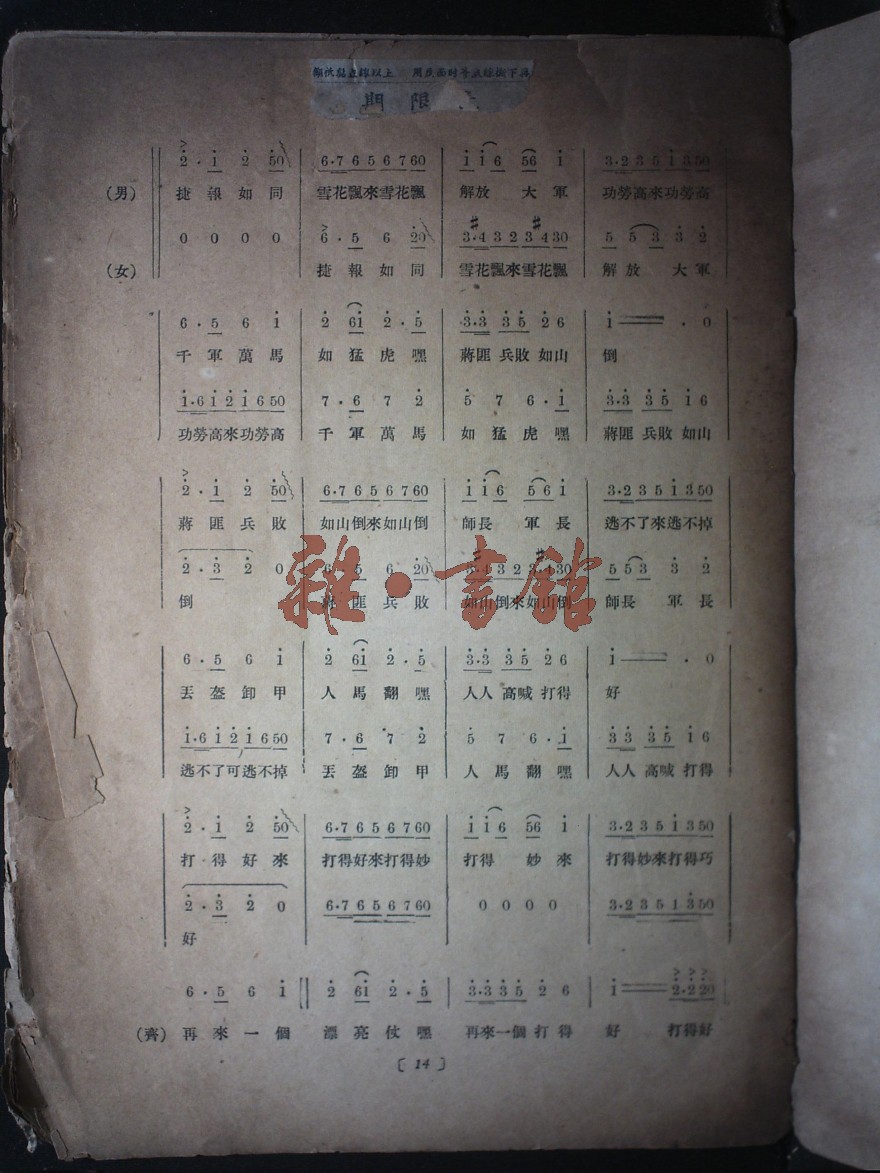 期限
2·1 2 50 6·7 6 5 6 7 60 1 1 6 56 1 3·2 3 5 1 3 50
(男) 捷報如同 雪花飄來雪花飄 解放 大軍 功勞高來功勞高
0 0 0 0 6·5 6 20 3·#4 3 2 3 #4 30 5 5 3 3 2
(女) 捷報如同 雪花飄來雪花飄 解放 大軍
6·5 6 1 2 61 2·5 3·3 3 5 2 6 1 —— ·0
千軍萬馬 如猛虎嘿 蔣匪兵敗如山 倒
1·6 1 2 1 6 50 7·6 7 2 5 7 6·1 3·3 3 5 1 6
功勞高來功勞高 千軍萬馬 如猛虎嘿 蔣匪兵敗如山
2·1 2 50 6·7 6 5 6 7 60 1 1 6 5 6 1 3·2 3 5 1 3 50
蔣匪兵敗 如山倒來如山倒 師長 軍長 逃不了來逃不掉
2·3 2 0 6·5 6 20 3·#4 3 2 3 #4 30 5 5 3 3 2
倒 蔣匪兵敗 如山倒來如山倒 師長 軍長
6·5 6 1 2 61 2·5 3·3 3 5 2 6 1 —— ·0
丟盔卸甲 人馬翻嘿 人人高喊打得 好
1·6 1 2 1 6 50 7·6 7 2 5 7 6·1 3 3 3 5 1 6
逃不了可逃不掉 丟盔卸甲 人馬翻嘿 人人高喊打得
2·1 2 50 6·7 6 5 6 7 60 1 1 6 56 1 3·2 3 5 1 3 50
打得好來 打得好來打得妙 打得 妙來 打得妙來打得巧
2·3 2 0 6·7 6 5 6 7 60 0 0 0 0 3·2 3 5 1 3 50
好
6·5 6 1 2 61 2·5 3·3 3 5 2 6 1 —— 2·2 20
(齊) 再來一個 漂亮仗嘿 再來一個打得 好 打得好
〔14〕
雜·書館